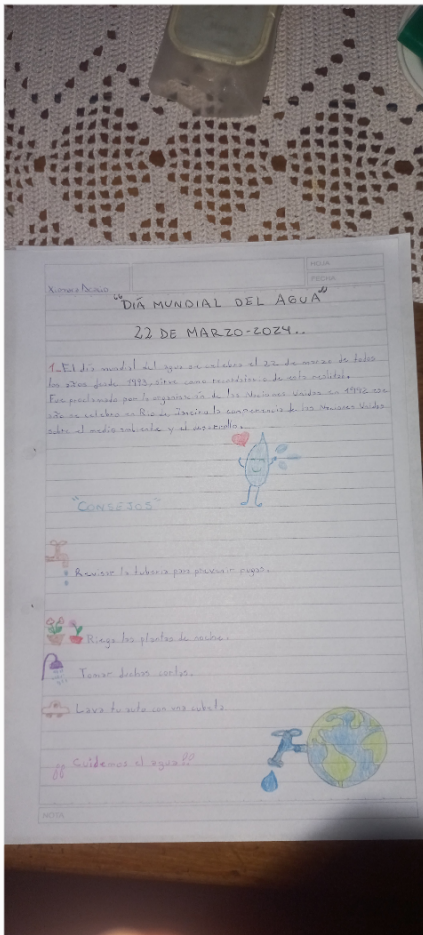 HOJA
FECHA
"DIÁ MUNDIAL DEL AGUA"
22 DE MARZO-2024..
1-El día mundial del agua se celebra el 22 de marzo de todos
los años desde 1993, sirve como recordatorio de esta
Fue proclamado por la organización de las Naciones Unidas en 1992 ese
año se celebra en Rio de Janeiro la conferencia de las Naciones Unidas
sobre el medio ambiente y el desarrollo.
"CONSEJOS"
Revisar la tuberia para prevenir fugas.
Riega las plantas de noche.
Tomar duchas cortas.
Lava tu auto con una cubeta
¡¡ Cuidemos el agua!!
NOTA